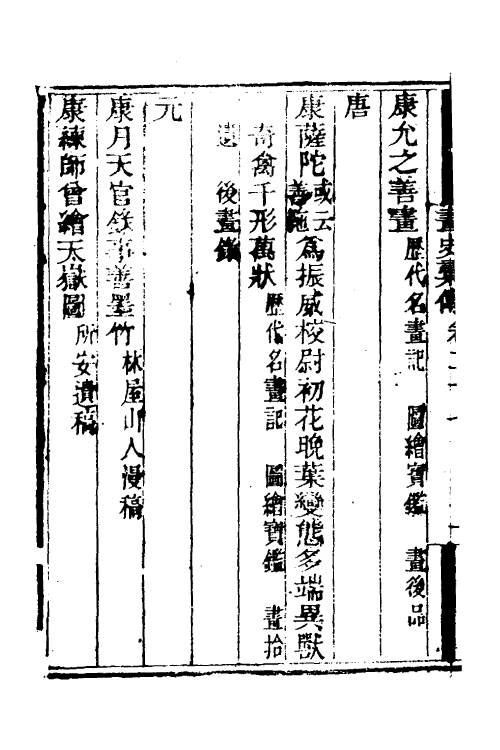 畫史彙傳 卷二十
康允之善畫 歷代名畫記 圖繪寶鑑 畫後品
唐
康薩陀 或云善施 為振威校尉初花晚葉變態多端異獸
奇禽千形萬狀 歷代名畫記 圖繪寶鑑 畫拾
遺 後畫錄
元
康月天官錄事善墨竹 林屋山人漫稿
康練師曾繪天嶽圖 所安遺稿